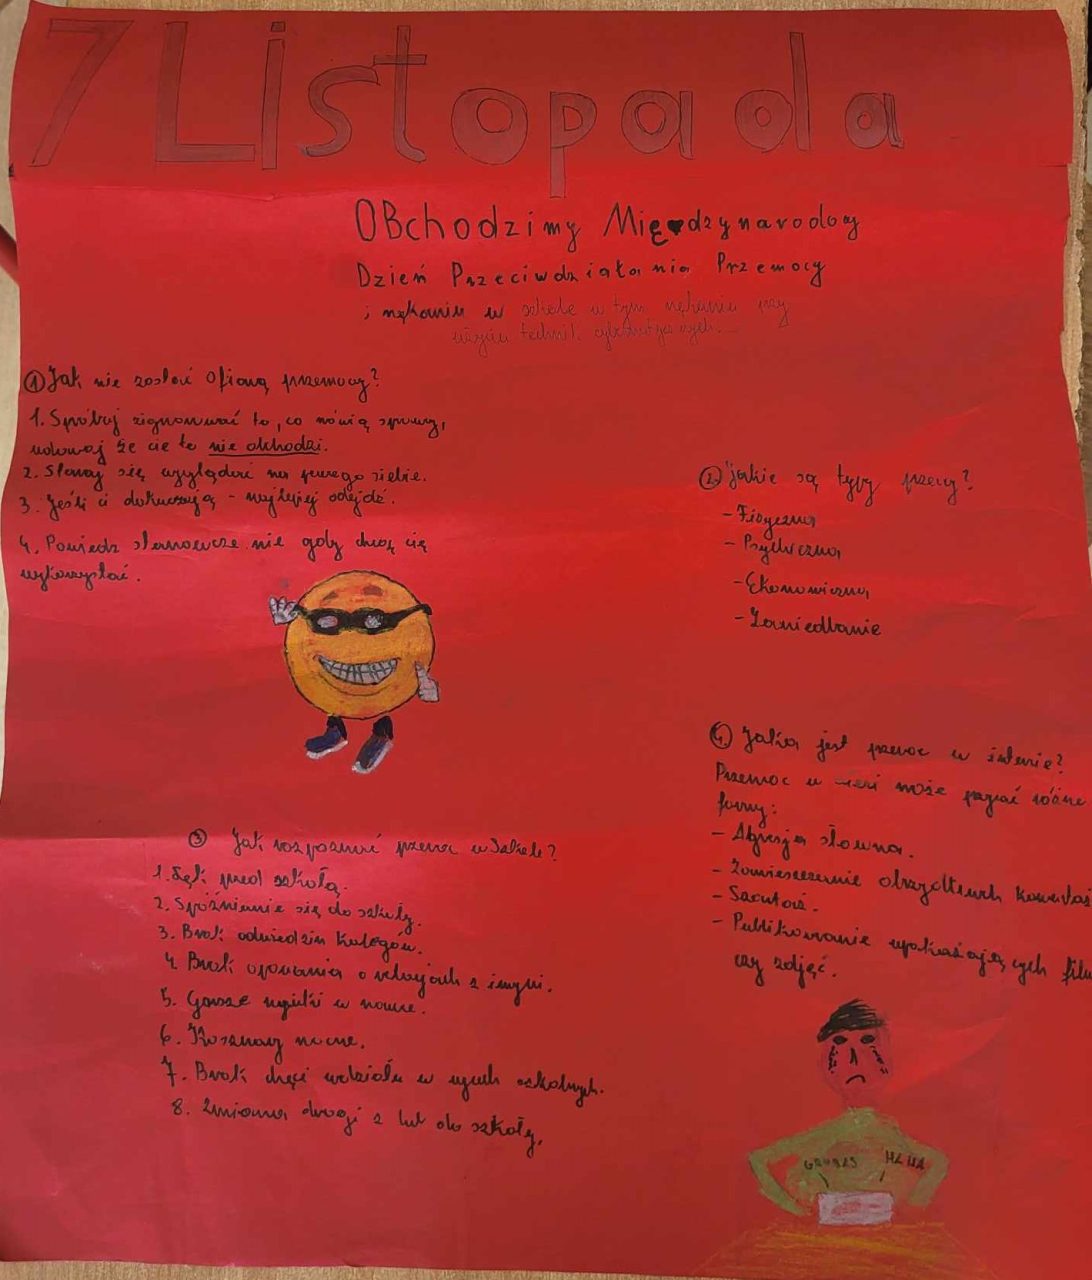 7 Listopada
OBchodzimy Międzynarodowy
Dzień Przeciwdziałania Przemocy
i nękaniu w szkole w tym nękaniu przy
użyciu technik cybernetycznych.
① Jak nie zostać ofiarą przemocy?
1. Spróbuj zignorować to, co mówią sprawcy,
udawaj że cie to nie obchodzi.
2. Staraj się wyglądać na pewnego siebie.
3. Jeśli ci dokuczają - najlepiej odejdź.
4. Powiedz stanowcze nie gdy chcą cię
wykorzystać.
② Jakie są typy
- Fizyczna
- Psychiczna
- Ekonomiczna
- Zaniedbanie
③ Jak rozpoznać w szkole?
1. Lęk przed szkołą.
2. Spóźnianie się do szkoły.
3. Brak odwiedzin kolegów.
4. Brak o relacjach z innymi.
5. Gorsze wyniki w nauce.
6. Koszmary nocne.
7. Brak chęci udziału w szkolnych.
8. Zmiana drogi z lub do szkoły.
Jaka jest w
Przemoc w sieci może różne
formy:
- Agresja słowna.
- Zamieszczanie obrzydliwych
- Szantaż.
- Publikowanie
czy zdjęć.
GRUBAS HA HA